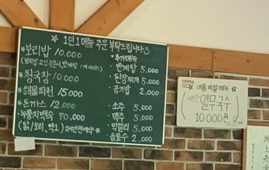 1인1메뉴 주문 부탁드립니다
*보리밥 10,000
*청국장 10,000
*해물파전 15,000
*돈가스 12,000
*누룽지백숙 70,000
*추가메뉴
반계탕 5,000
공기밥 2,000
소주 5,000
맥주 5,000
막걸리 5,000
음료수 2,000
열무국수
10,000원